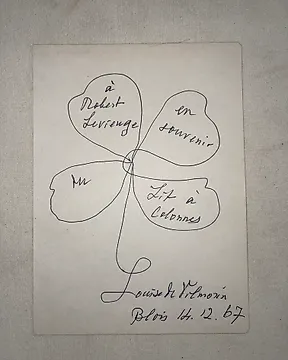 à
Robert
Levrouge
en
souvenir
du
Lit à
Colonnes
Louise de Vilmorin
Blois 14.12.67